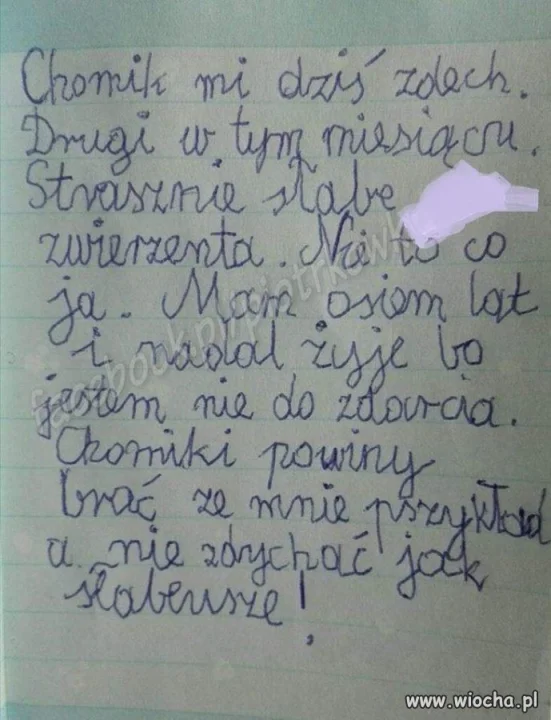 Chomik mi dziś zdech.
Drugi w tym miesiącu.
Strasznie słabe
zwierzenta. Nie to co
ja. Mam osiem lat
i nadal żyje bo
jestem nie do zdarcia.
Chomiki powiny
brać ze mnie pszykład
a nie zdychać jak
słabeusze!
facebook.pl/piotrkowk
www.wiocha.pl